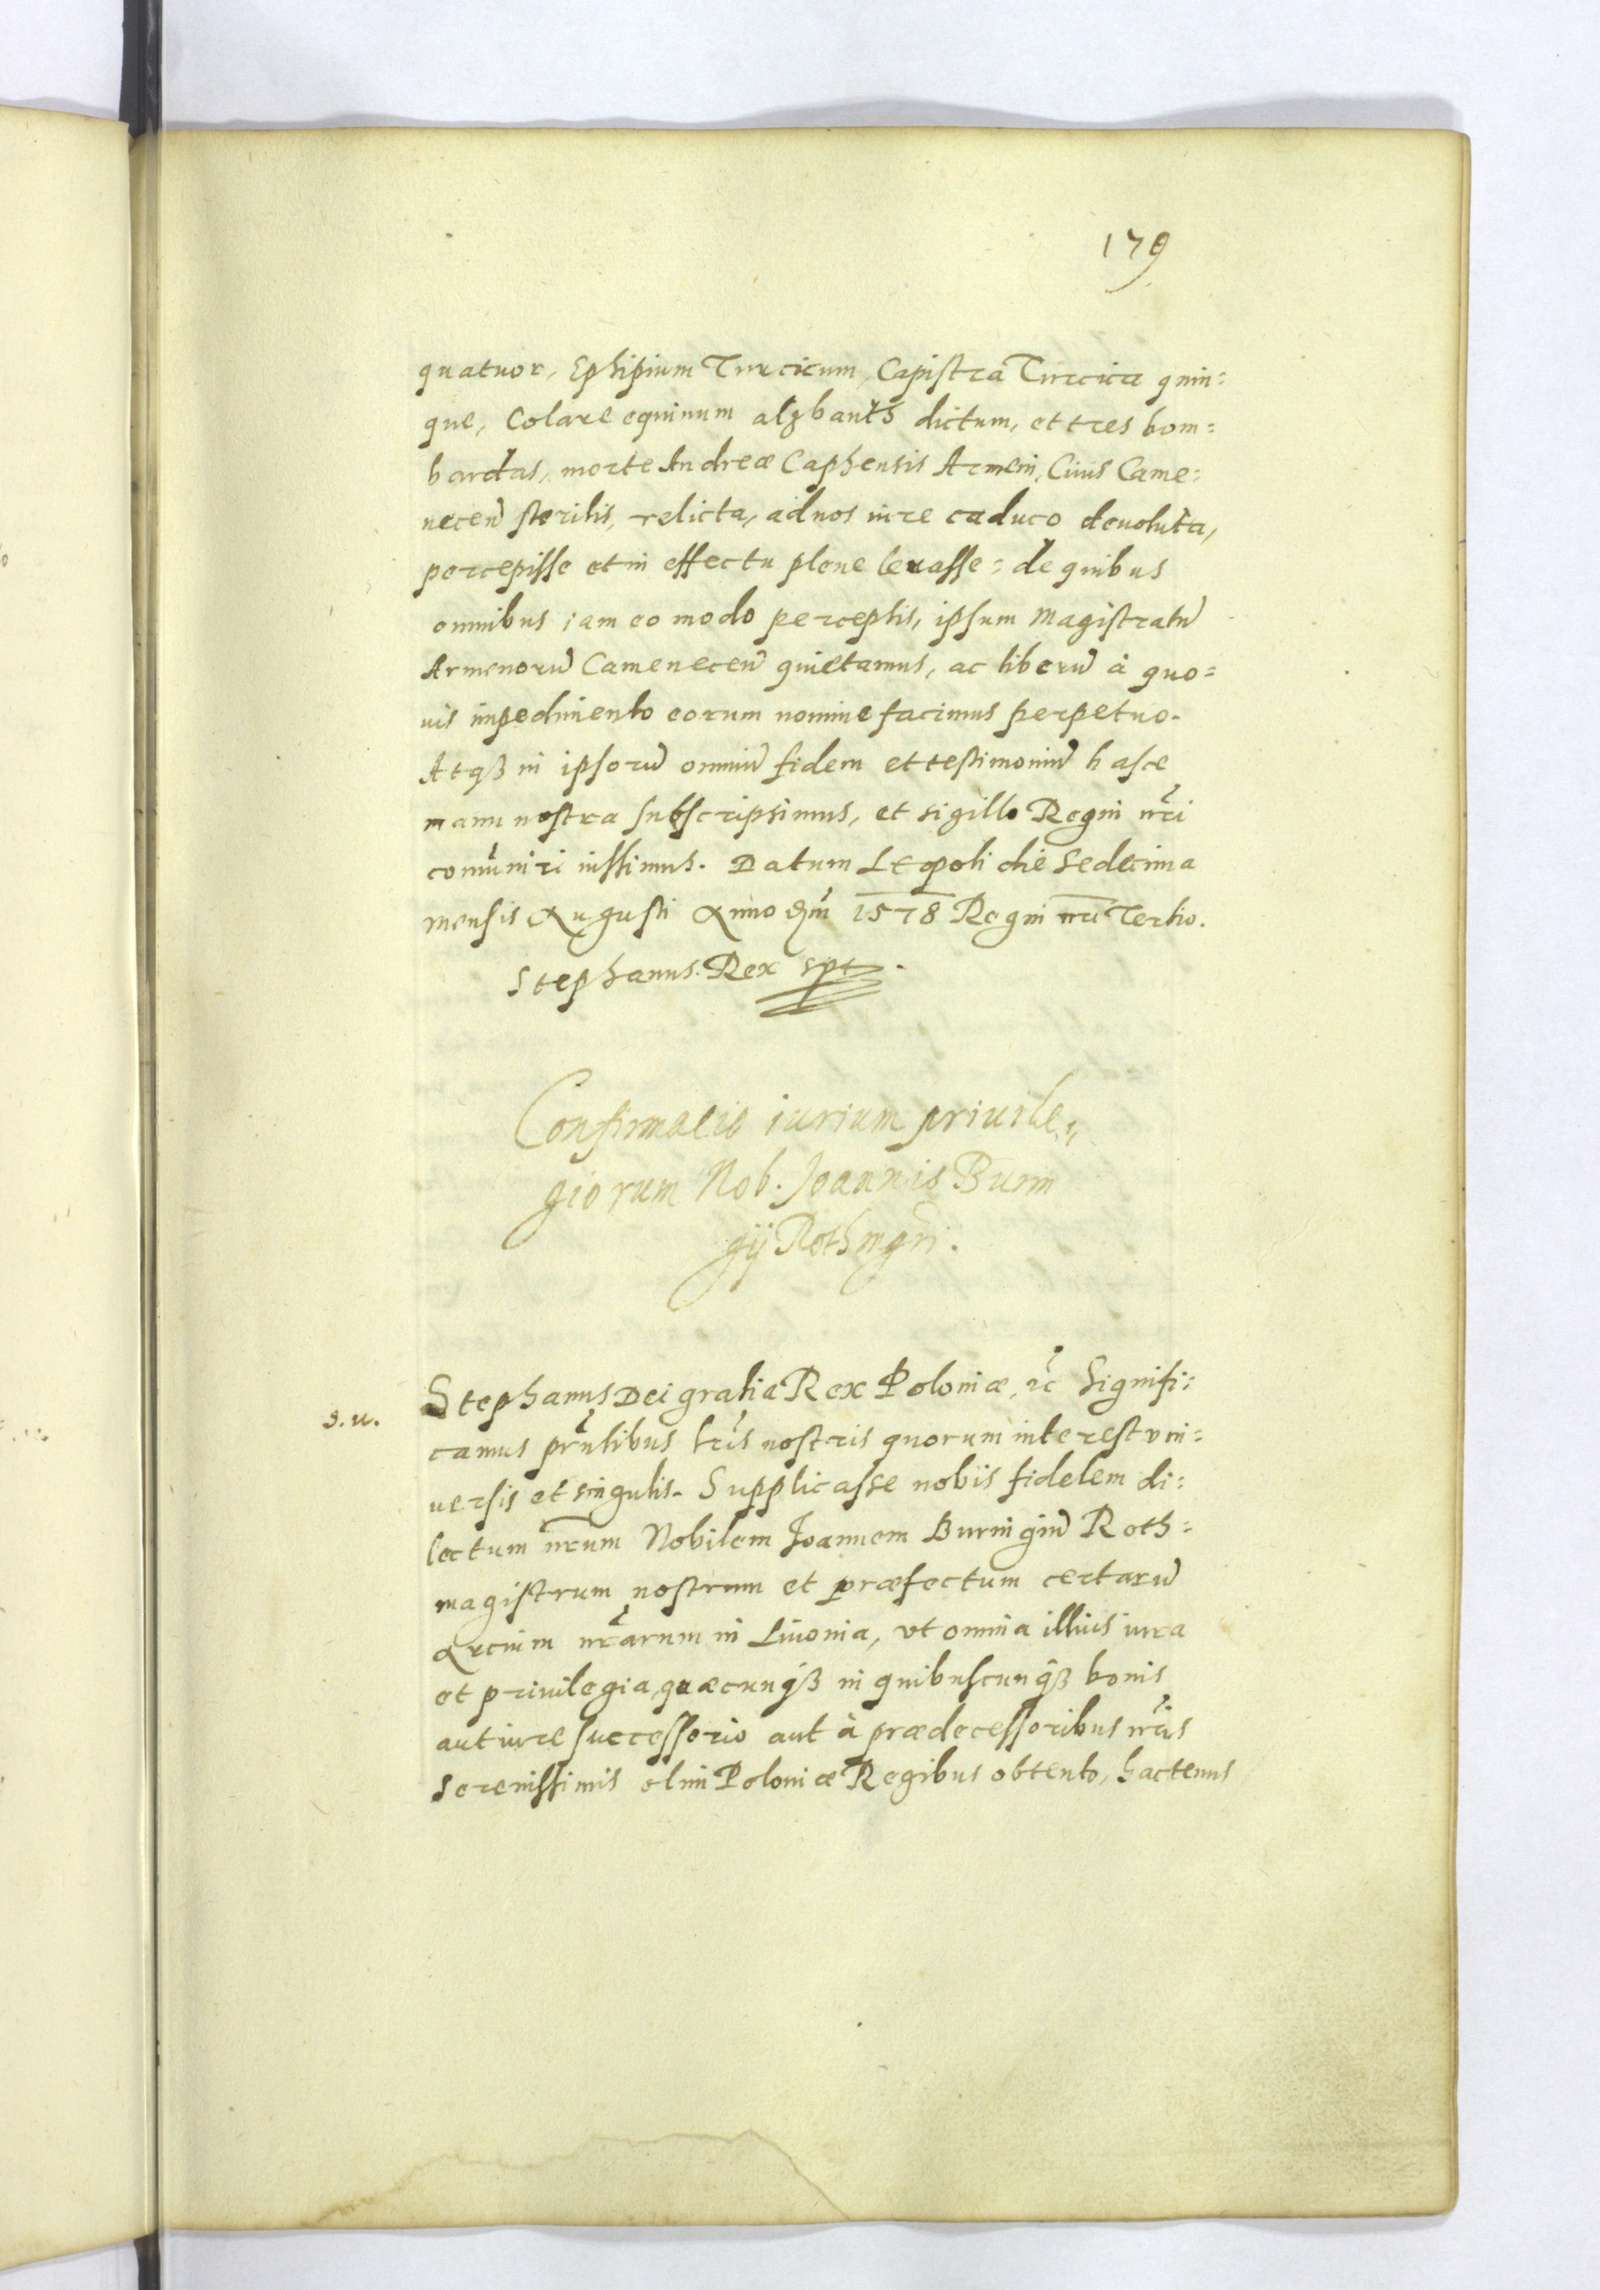 179
quatuor, Ephipium Turcicum, Capistra Turcica quin=
que, Colare equinum alzbanth dictum, et tres bom=
bardas, morte Andreæ Caphensis Armeni, Civis Came=
necen̄ sterilis, relicta, ad nos iure caduco deuoluta,
percepisse et in effectu plene leuasse: de quibus
omnibus iam eo modo perceptis, ipsum Magistratū
Armenorū Camenecen̄ quietamus, ac liberū à quo=
uis impedimento eorum nomine facimus perpetuo.
Atqꝫ in ipsorū omniū fidem et testimoniū hasce
manu nostra subscripsimus, et sigillo Regni nr̄i
com̄uniri iussimus. Datum Leopoli die Sedecima
mensis Augusti Anno Dn̄i 1578 Regni nr̄i Tertio.
Stephanus Rex sp̄t.
Confirmatio iurium priuile,,
giorum Nob. Joannis Burin
gij Rothmgr̄i.
s. u.
Stephanus Dei gratia Rex Poloniæ, ꝛc̄ Signifi:
camus pn̄tibus lr̄is nostris quorum interest vni:
uersis et singulis. Supplicasse nobis fidelem di:
lectum nr̄um Nobilem Joannem Buringiū Roth=
magistrum nostrum et præfectum certarū
Arcium nr̄arum in Liuonia, vt omnia illius iura
et priuilegia, quæcunqꝫ in quibuscunqꝫ bonis
aut iure successorio aut à prædecessoribus nr̄is
Serenissimis olim Poloniæ Regibus obtento, hactenus